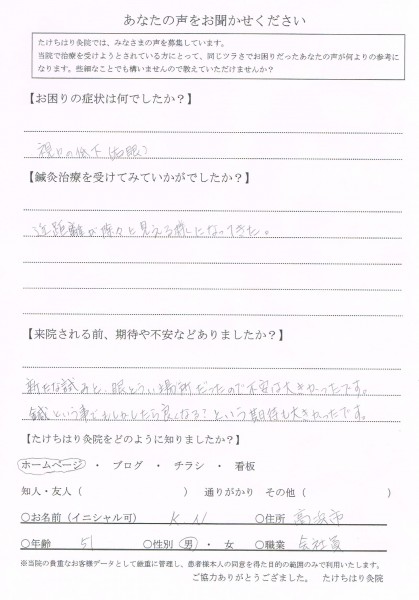 あなたの声をお聞かせください
たけちはり灸院では、みなさまの声を募集しています。
当院で治療を受けようとされている方にとって、同じツラさでお困りだったあなたの声が何よりの参考に
なります。些細なことでも構いませんので教えていただけませんか?
【お困りの症状は何でしたか?】
視力の低下(右眼)
【鍼灸治療を受けてみていかがでしたか?】
近距離が徐々に見える様になってきた。
【来院される前、期待や不安などありましたか?】
新たな試みと、眼という場所だったので不安は大きかったです。
鍼という事でもしかしたら良くなる?という期待も大きかったです。
【たけちはり灸院をどのように知りましたか?】
ホームページ ・ ブログ ・ チラシ ・ 看板
知人・友人( ) 通りがかり その他( )
○お名前(イニシャル可) K.N ○住所 高浜市
○年齢 51 ○性別 男 ・ 女 ○職業 会社員
※当院の貴重なお客様データとして厳重に管理し、患者様本人の同意を得た目的の範囲のみで利用いたします。
ご協力ありがとうござました。 たけちはり灸院